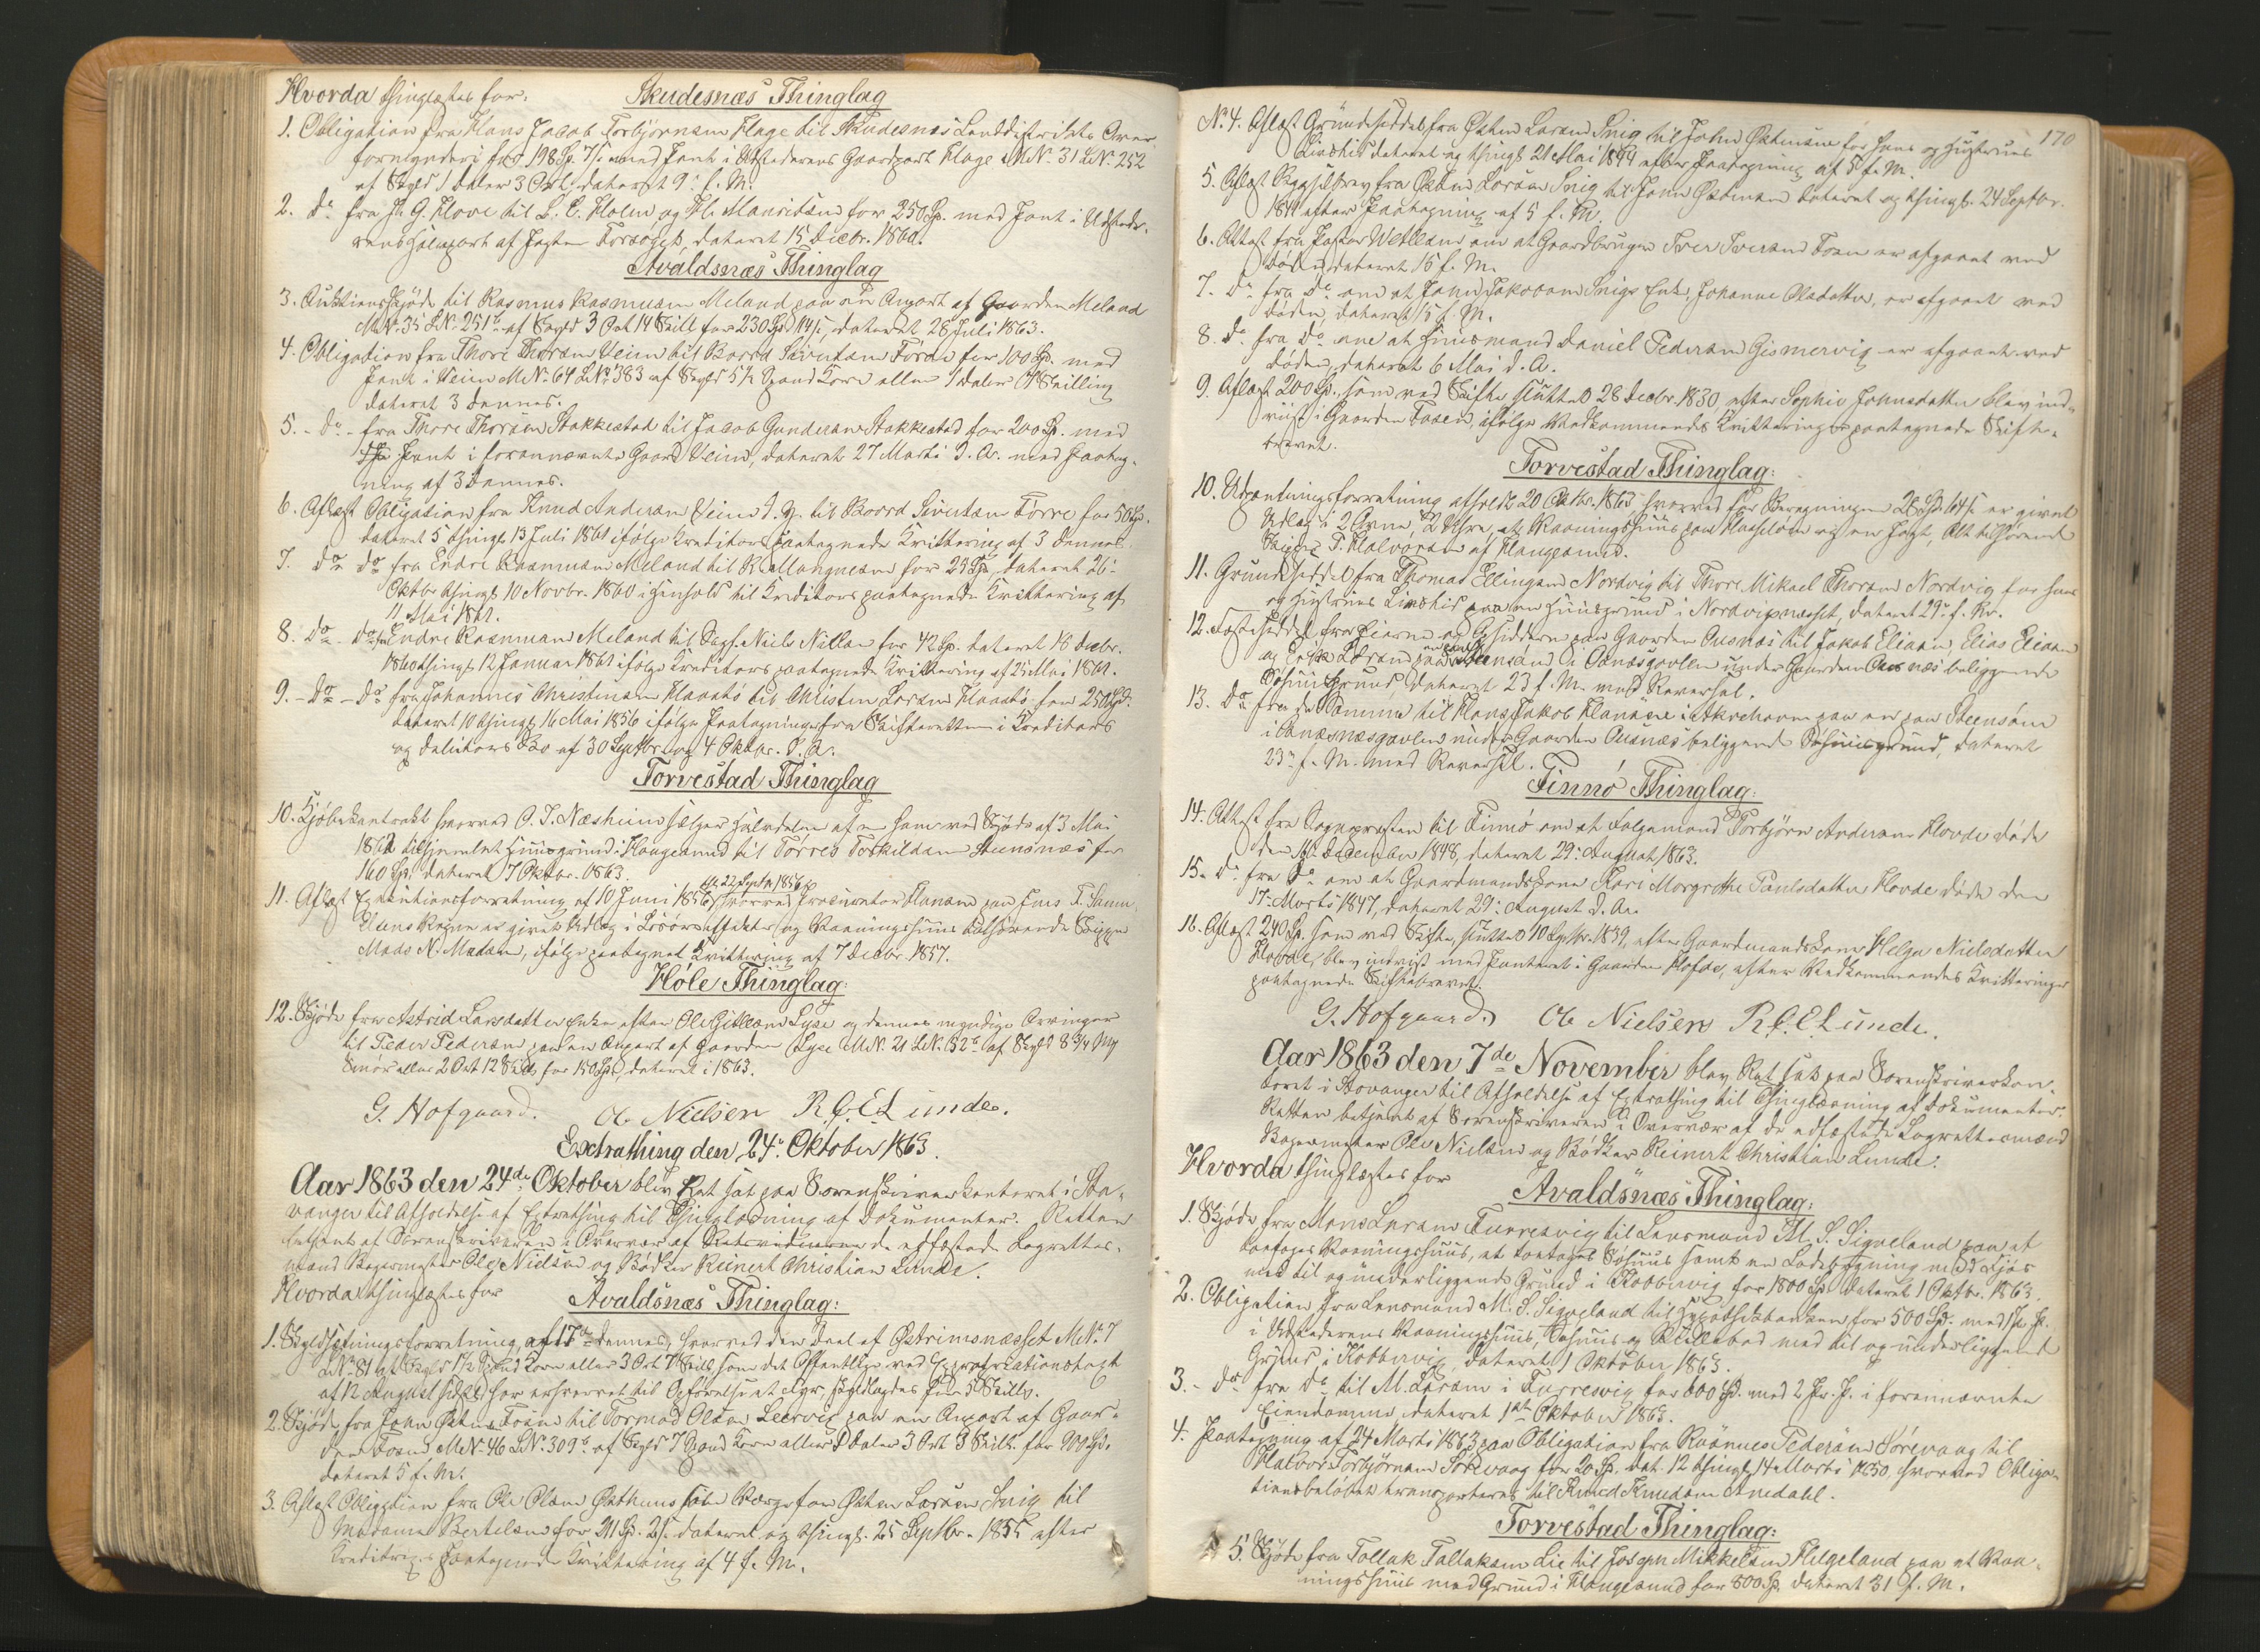 Hvorda thinglæstes for:
Skudesnæs Thinglag
1. Obligation fra Hans Jacob Torbjørnsen Hage til Skudesnæs Landdistrikts Over-
formynderi for 198 Sp. 7 s. med Pant i Udstederens Gaardpart Hage MNº 31 LNº 252
af Skyld 1 Daler 3 Ort, dateret 9. f. M.
2. Dº fra H. G. Hove til L. C. Holm og Hl. Mauritsen for 250 Sp. med Pant i Udstede-
rens Halvpart af Jagten Forsøget, dateret 15 Decbr. 1860.
Avaldsnæs Thinglag
3. Auktionsskjøde til Rasmus Rasmusen Meland paa en Anpart af Gaarden Meland
MNº 35 LNº 251 b af Skyld 3 Ort 14 Skill for 230 Spd 14 s, dateret 28 Juli 1863.
4. Obligation fra Thore Thorsen Veim til Baard Sivertsen Førre for 100 Sp. med
Pant i Veim MNº 64 LNº 383 af Skyld 5½ Spand Korn eller 1 Daler Skilling
dateret 3 dennes.
5. - Dº - fra Thore Thorsen Stakkestad til Jacob Gundersen Stakkestad for 200 Sp. med
Pant i forannævnte Gaard Veim, dateret 27 Marts d. A. med Paateg-
ning af 3 dennes.
6. Aflæst Obligation fra Knud Andersen Veim d. y. til Baard Sivertsen Førre for 50 Sp.
dateret 5 thingl. 13 Juli 1861 ifølge Kreditors paategnede Kvittering af 3 dennes.
7. Dº Dº fra Endre Rasmusen Meland til R. Mangnesen for 25 Sp, dateret 26
Oktbr thingl. 10 Novbr. 1860 i Henhold til Kreditors paategnede Kvittering af
11 Mai 1861.
8. Dº - Dº fra Endre Rasmusen Meland til Sagf. Niels Nielsen for 42 Sp. dateret 18 Decbr.
1860 thingl. 12 Januar 1861 ifølge Kreditors paategnede Kvittering af 25 Mai 1861.
9. - Dº - Dº fra Johannes Christensen Haaatø til Christen Larsen Haaatø for 250 Sp.
dateret 10 thingl. 16 Mai 1856 ifølge Paategninger fra Skifteretten i Kreditors
og Debitors Bo af 30 Septbr. og 4 Oktbr. d. A.
Torvestad Thinglag
10. Kjøbekontrakt hvorved O. T. Næsheim sælger Halvdelen af en ham ved Skjøde af 3 Mai
1862 tilhjemlet Huusgrund i Haugesund til Torres Torkildsen Steensnæs for
160 Sp. dateret 7 Oktbr. 1863.
11. Aflæst Executionsforretning af 10 Juni 1856 thgl. 22 Septbr 1856, hvorved Procurator Hansen paa Enes T. Samu-
elsens Vegne er givet Udlæg i Løsøre effekter og Vaaningshuus tilhørende Skipper
Mads N. Madsen, ifølge paategnet Kvittering af 7 Decbr. 1857.
Høle Thinglag:
12. Skjøde fra Astrid Larsdatter Enke efter Ole Gitlesen Lyse og dennes myndige Arvinger
til Peder Pedersen paa en Anpart af Gaarden Lyse MNº 21 LNº 52 b af Skyld 8¾ Mrk
Smør eller 2 Ort 12 Skill for 150 Sp, dateret i 1863.
G. Hofgaard. Ole Nielsen R.C.E Lunde.
Extrathing den 24de Oktober 1863.
Aar 1863 den 24de Oktober blev Ret sat paa Sorenskriverkontoret i Sta-
vanger til Afholdelse af Extrathing til Thinglæsning af Dokumenter. Retten
betjent af Sorenskriveren i Overvær af Retsvidnerne de edfæstede Lagrettes-
mænd Bagermester Ole Nielsen og Bødker Reinert Christian Lunde.
Hvorda thinglæstes for
Avaldsnæs Thinglag:
1. Skyldsætningsforretning af 17de dennes, hvorved den Deel af Østrimsnæsset MNº 7
LNº 81 af Skyld 1½ Spand Korn eller 3 Ort 7 Skill, som det Offentlige ved Expropriationstagt
af 12 August har erhvervet til Opførelse af Fyr, skyldlagdes for 5 Skill.
2. Skjøde fra John Østensen Fosen til Tormod Olsen Leervig paa en Anpart af Gaar-
den Fosen MNº 46 LNº 309 b af Skyld 7 Spand Korn eller 1 Daler 3 Ort 3 Skill. for 900 Sp.
dateret 5 f. M.
3. Aflæst Obligation fra Ole Olsen Østhuus som Værge for Østen Larsen Snig til
Madame Bertelsen for 211 Sp. 21 s. dateret og thingl. 25 Septbr. 1855 efter
Kreditrixs paategnede Kvittering af 4 f. M.
170
Nº 4. Aflæst Grundseddel fra Østen Larsen Snig til John Østensen for hans og Hustrues
Livstid dateret og thingl. 21 Mai 1844 efter Paategning af 5 f. M.
5. Aflæst Bygselbrev fra Østen Larsen Snig til John Østensen dateret og thingl. 24 Septbr.
1841 efter Paategning af 5 f. M.
6. Attest fra Pastor Wetlesen om at Gaardbruger Iver Iversen Fosen er afgaaet ved
Døden, dateret 15 f. M.
7. Dº fra Dº om at John Jakobsen Snigs Enke, Johanne Olsdatter, er afgaaet ved
Døden, dateret 15 f. M.
8. Dº fra Dº om at Huusmand Daniel Pedersen Gismervig er afgaaet ved
Døden, dateret 6 Mai d. A.
9. Aflæst 200 Sp., som ved Skifte sluttet 28 Decbr. 1830, efter Sophie Johnsdatter blev ind-
viist i Gaarden Fosen, ifølge Vedkommendes Kvitteringer paategnede Skifte-
brevet.
Torvestad Thinglag:
10. Udpantningsforretning afholdt 20 Oktbr. 1863 hvorved for Beregningen 28 Sp. 64 s. er givet
Udlæg i 2 Ovne, 2 Uhre, et Vaaningshuus paa Hasseløen og en Jagt, Alt tilhørende
Skipper P. Halvorsen af Haugesund.
11. Grundseddel fra Thomas Ellingsen Nordvig til Thore Mikael Thorsen Nordvig for hans
og Hustrues Livstid paa en Huusgrund i Nordvignæsset, dateret 29de f. M.
12. Fæsteseddel fra Eierne og Besidderne paa Gaarden Ousnæs til Jakob Eliasen, Elias Eliasen
og Erik Larsen paa en paa Steensøen i Ousnæsgavlen under Gaarden Ousnæs beliggende
Søhuusgrund, dateret 23 f. M. med Reversal.
13. Dº fra de Samme til Hans Jakob Hansen i Akrehavn paa en paa Steensøen
i Ousnæsnæsgavlen under Gaarden Ousnæs beliggende Søhuusgrund, dateret
23de f. M. med Reversal.
Finnø Thinglag:
14. Attest fra Sognepresten til Finnø om at Folgemand Torbjørn Andersen Hovde døde
den 16 December 1848, dateret 29. August 1863.
15. Dº fra Dº om at Gaardmandskone Kari Margrethe Paulsdatter Hovde døde den
17. Marts 1847, dateret 29. August d. A.
16. Aflæst 240 Sp. som ved Skifte, sluttet 10 Septbr. 1839, efter Gaardmandskone Helga Nielsdatter
Hovde, blev indviist med Panteret i Gaarden Hofde, efter Vedkommendes Kvitteringer
paategnede Skiftebrevet.
G. Hofgaard. Ole Nielsen R.C.E Lunde.
Aar 1863 den 7de November blev Ret sat paa Sorenskriverkon-
toret i Stavanger til Afholdelse af Extrathing til Thinglæsning af Dokumenter.
Retten betjent af Sorenskriveren i Overvær af de edfæstede Lagrettesmænd
Bagermester Ole Nielsen og Bødker Reinert Christian Lunde.
Hvorda thinglæstes for
Avaldsnæs Thinglag:
1. Skjøde fra Mons Larsen Furresvig til Lensmand M. S. Siqveland paa et
toetages Vaaningshuus, et toetages Søhuus samt en Ladebygning med Fjøs
med til og underliggende Grund i Kobbervig for 1800 Sp. dateret 1 Oktbr. 1863.
2. Obligation fra Lensmand M. S. Siqveland til Hypothekbanken for 500 Sp. med 1ste Pr.
i Udstederens Vaaningshuus, Søhuus og med til og underliggende
Grund i Kobbervig, dateret 1 Oktober 1863.
3. - Dº fra Dº til M. Larsen i Furresvig for 800 Sp. med 2 Pr. P. i forannævnte
Eiendomme, dateret 1ste Oktober 1863.
4. Paategning af 24 Marts 1863 paa Obligation fra Rasmus Pedersen Sørevaag til
Halvor Torbjørnsen Sørevaag for 20 Sp. dat. 12 thingl. 14 Marts 1850, hvorved Obliga-
tionsbeløbet transporteres til Knud Knudsen Aredahl.
Torvestad Thinglag:
5. Skjøde fra Tollak Tollaksen Lie til Joseph Mikkelsen Helgeland paa et Vaa-
ningshuus med Grund i Haugesund for 800 Sp. dateret 31 f. M.